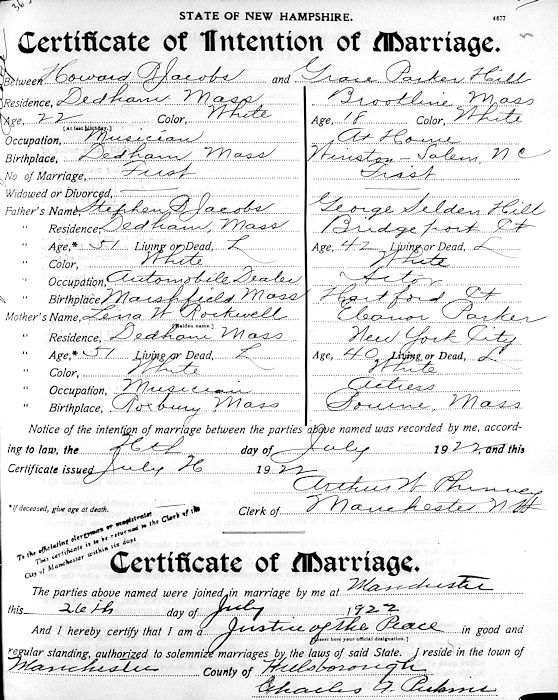 STATE OF NEW HAMPSHIRE. 4677
Certificate of Intention of Marriage.
Between Howard D Jacobs and Grace Parker Hill
Residence, Dedham, Mass Brookline Mass
Age, 22 Color, White Age, 18 Color, White
[At last birthday.]
Occupation, Musician At Home
Birthplace, Dedham Mass Winston-Salem, N C
No of Marriage, First First
Widowed or Divorced,
Father's Name, Stephen D Jacobs George Selden Hill
" Residence, Dedham, Mass Bridgeport Ct
" Age,* 51 Living or Dead, L Age, 42 Living or Dead, L
" Color, White White
" Occupation, Automobile Dealer Actor
" Birthplace, Marshfield Mass Hartford Ct
Mother's Name, Lena W Rockwell Eleanor Parker
[Maiden name.]
" Residence, Dedham Mass New York City
" Age,* 51 Living or Dead, L Age, 40 Living or Dead, L
" Color, White White
" Occupation, Musician Actress
" Birthplace, Roxbury Mass Bourne, Mass
Notice of the intention of marriage between the parties above named was recorded by me, accord-
ing to law, the 26th day of July 1922 and this
Certificate issued July 26 1922
Arthur W Phinney
*If deceased, give age at death. Clerk of Manchester N H
To the officiating clergyman or magistrate:
This certificate is to be returned to the Clerk of the
City of Manchester within six days
Certificate of Marriage.
The parties above named were joined in marriage by me at Manchester
this 26th day of July 1922
And I hereby certify that I am a Justice of the Peace in good and
[Insert here your official designation.]
regular standing, authorized to solemnize marriages by the laws of said State. I reside in the town of
Manchester County of Hillsborough
Charles F